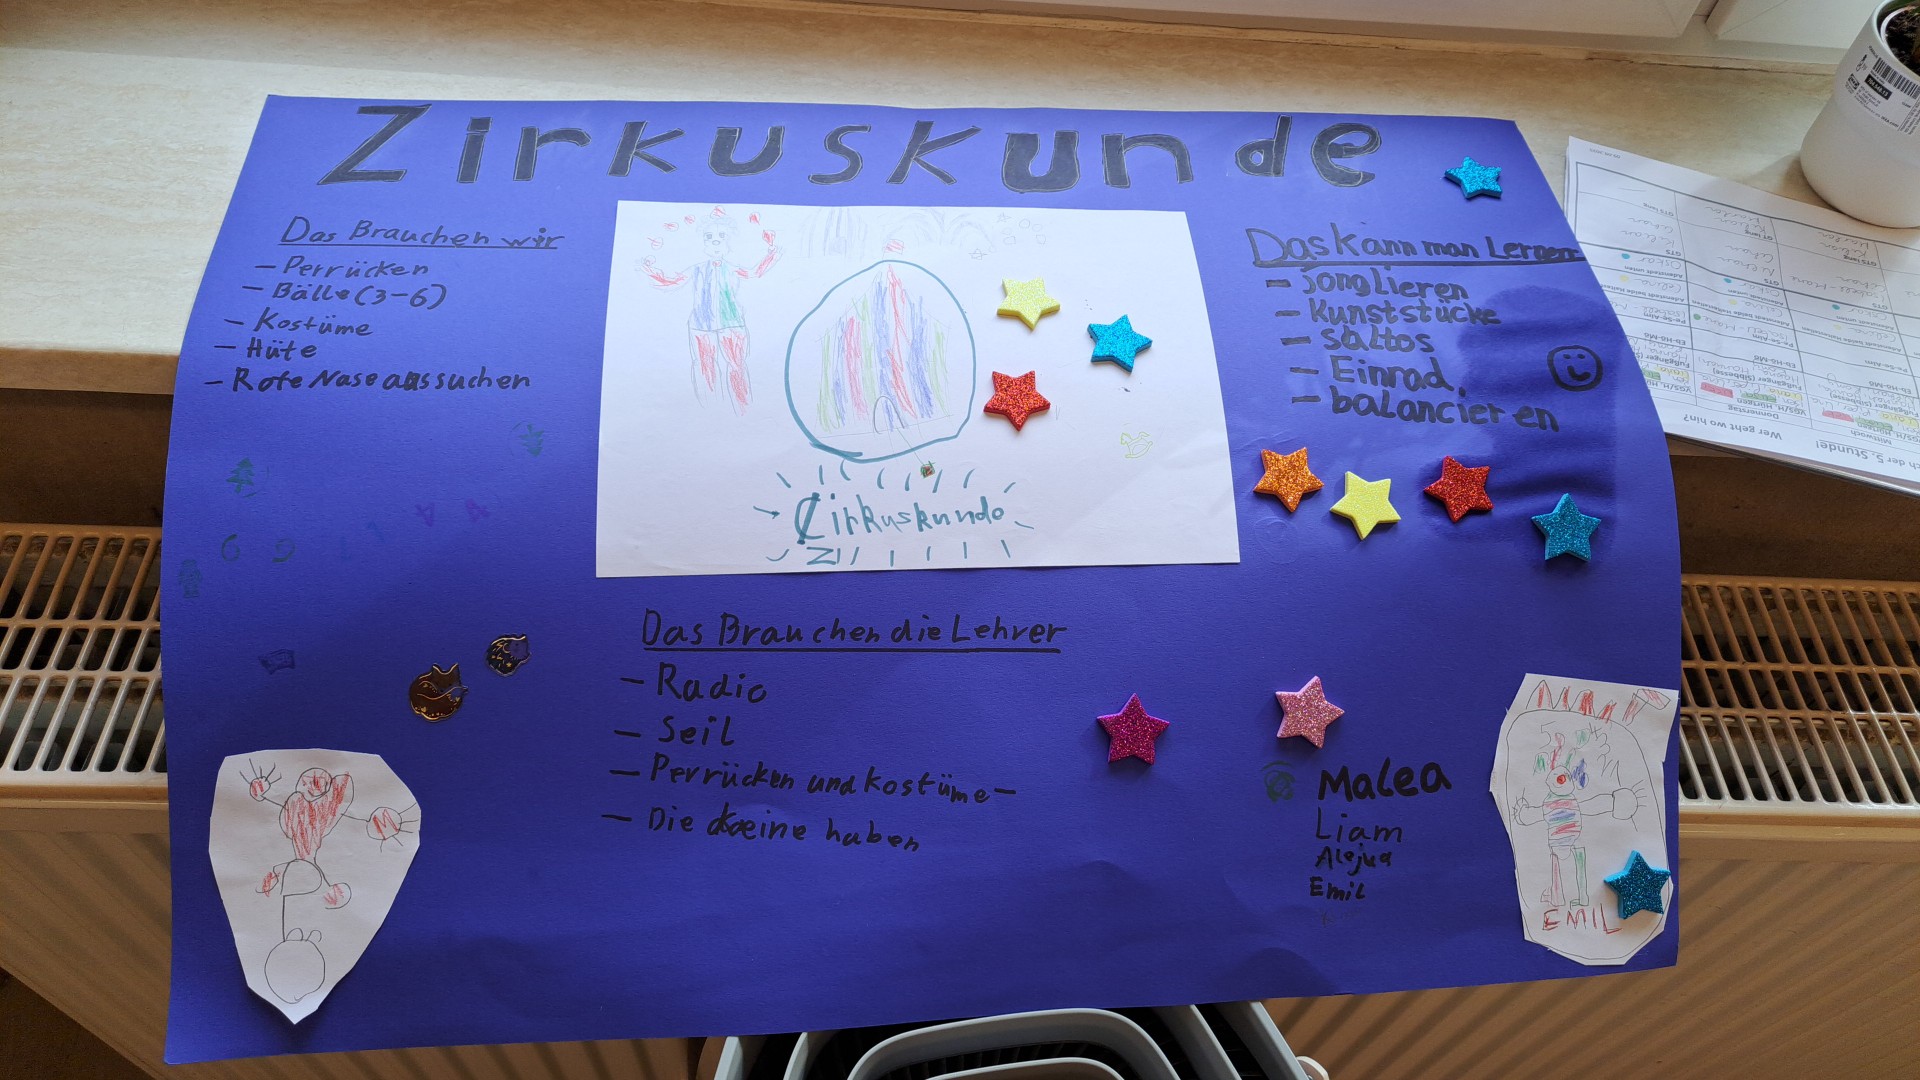 Zirkuskunde
Das Brauchen wir
- Perrücken
- Bälle (3-6)
- Kostüme
- Hüte
- Rote Nase aussuchen
Zirkuskunde
Das kann man Lernen
- jonglieren
- kunststücke
- saltos
- Einrad
- balancieren
Das Brauchen die Lehrer
- Radio
- Seil
- Perrücken und kostüme-
- Die keine haben
Malea
Liam
Emil
EMIL
Wer geht wo hin?
Mittwoch
Donnerstag